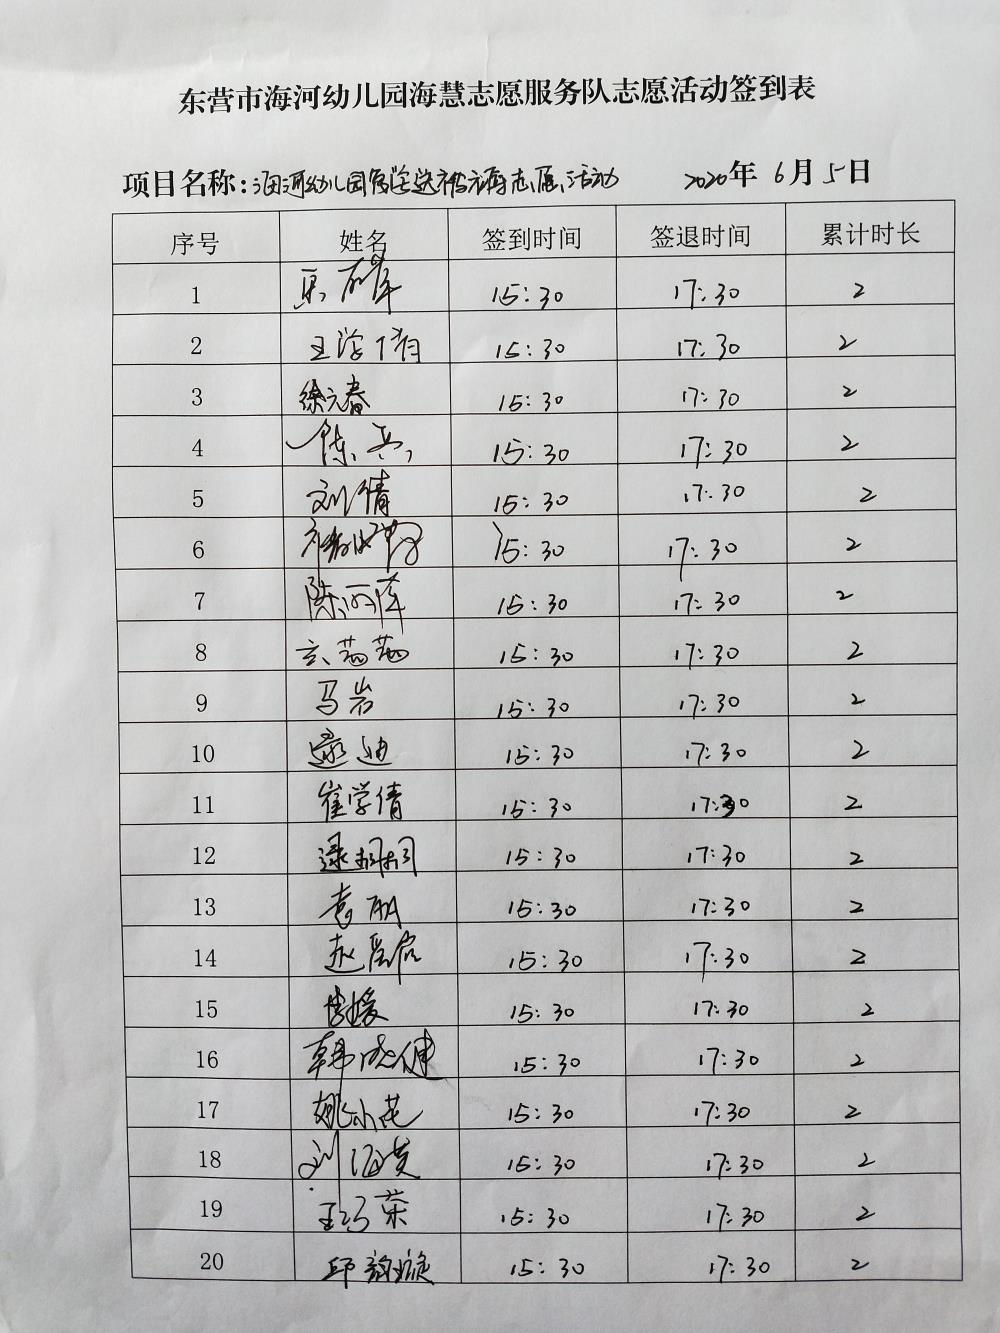 东营市海河幼儿园海慧志愿服务队志愿活动签到表
项目名称:海河幼儿园 志愿活动 2020年6月5日
序号 姓名 签到时间 签退时间 累计时长
1 15:30 17:30 2
2 王学倩 15:30 17:30 2
3 徐元春 15:30 17:30 2
4 陈兵 15:30 17:30 2
5 刘倩 15:30 17:30 2
6 15:30 17:30 2
7 陈丽萍 15:30 17:30 2
8 15:30 17:30 2
9 马岩 15:30 17:30 2
10 逯迪 15:30 17:30 2
11 崔学倩 15:30 17:30 2
12 逯栩栩 15:30 17:30 2
13 袁丽 15:30 17:30 2
14 15:30 17:30 2
15 李媛 15:30 17:30 2
16 韩晓健 15:30 17:30 2
17 姚小花 15:30 17:30 2
18 刘海英 15:30 17:30 2
19 王巧荣 15:30 17:30 2
20 邱韵璇 15:30 17:30 2